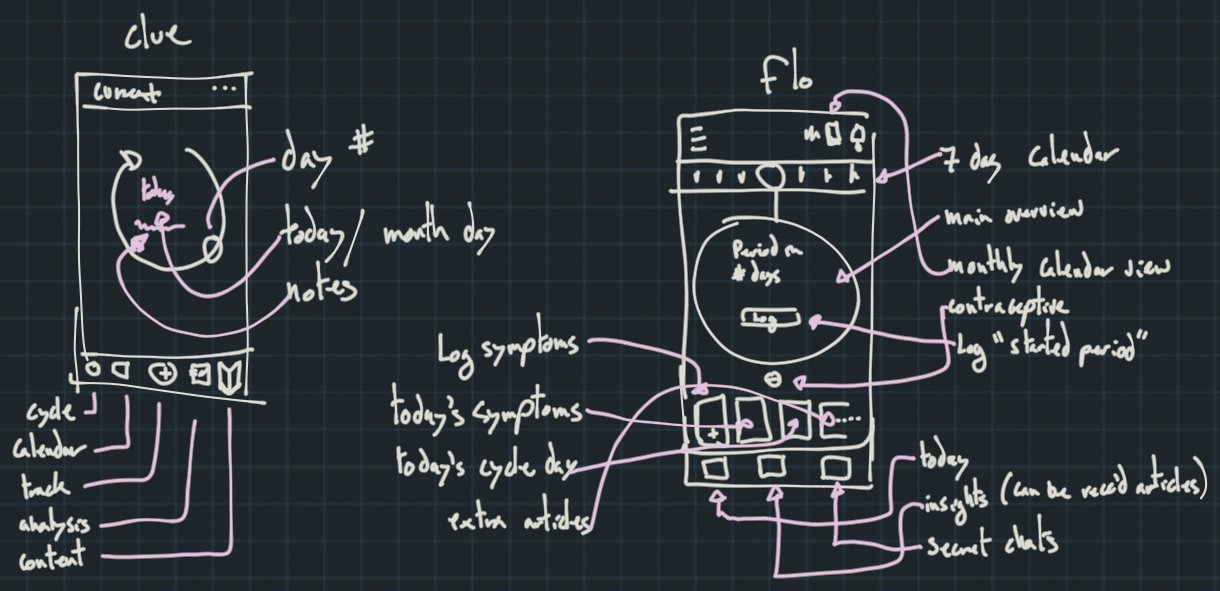 clue
current ...
day #
today
today/ month day
notes
cycle
calendar
track
analysis
content
flo
7 day calendar
main overview
Period in
# days
monthly calendar view
contraceptive
Log
Log "started period"
Log symptoms
today's symptoms
today's cycle day
extra articles
today
insights (can be rec'd articles)
secret chats